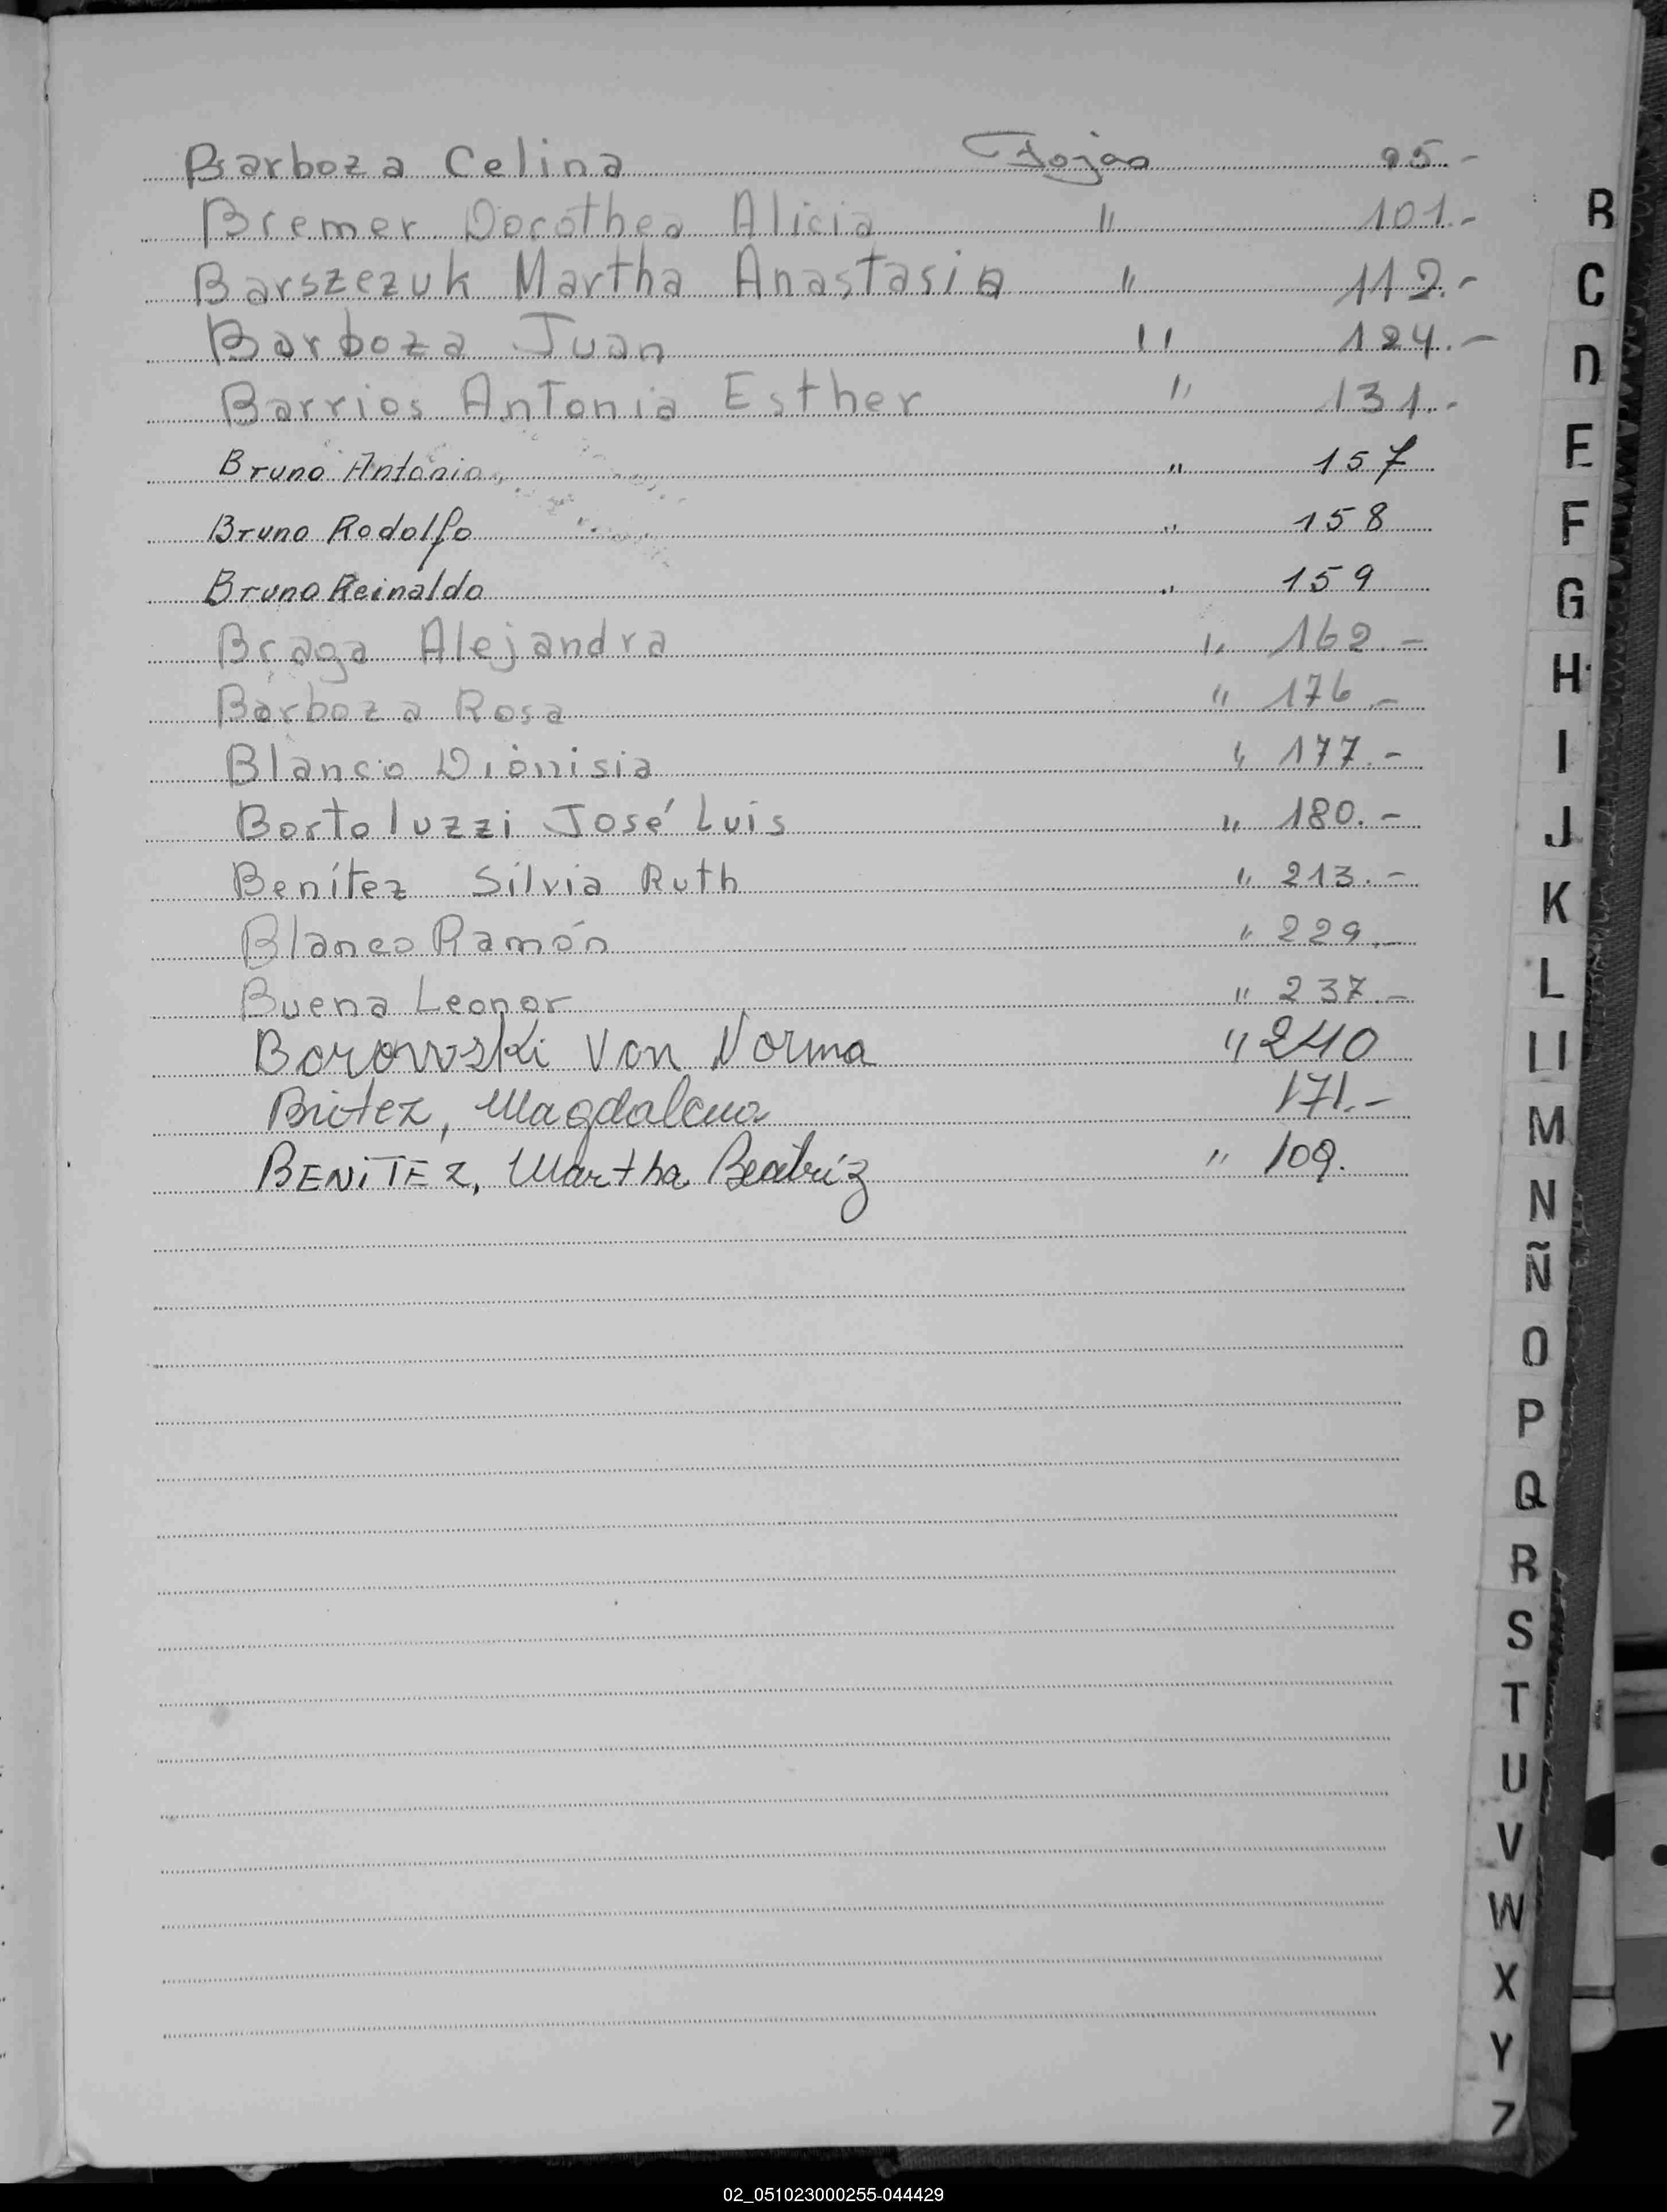 Barboza Celina Fojas 95.-
Bremer Dorothea Alicia " 101.-
Barszezuk Martha Anastasia " 112.-
Barboza Juan " 124.-
Barrios Antonia Esther " 131.-
Bruno Antonio " 157
Bruno Rodolfo " 158
Bruno Reinaldo " 159
Braga Alejandra " 162.-
Barboza Rosa " 176.-
Blanco Dionisia " 177.-
Bortoluzzi José Luis " 180.-
Benítez Silvia Ruth " 213.-
Blanco Ramón " 229.-
Buena Leonor " 237.-
Borowski Von Norma " 240
Britez, Magdalena 171.-
BENITEZ, Martha Beatriz " 109.
B
C
D
E
F
G
H
I
J
K
L
Ll
M
N
Ñ
O
P
Q
R
S
T
U
V
W
X
Y
Z
02_051023000255-044429